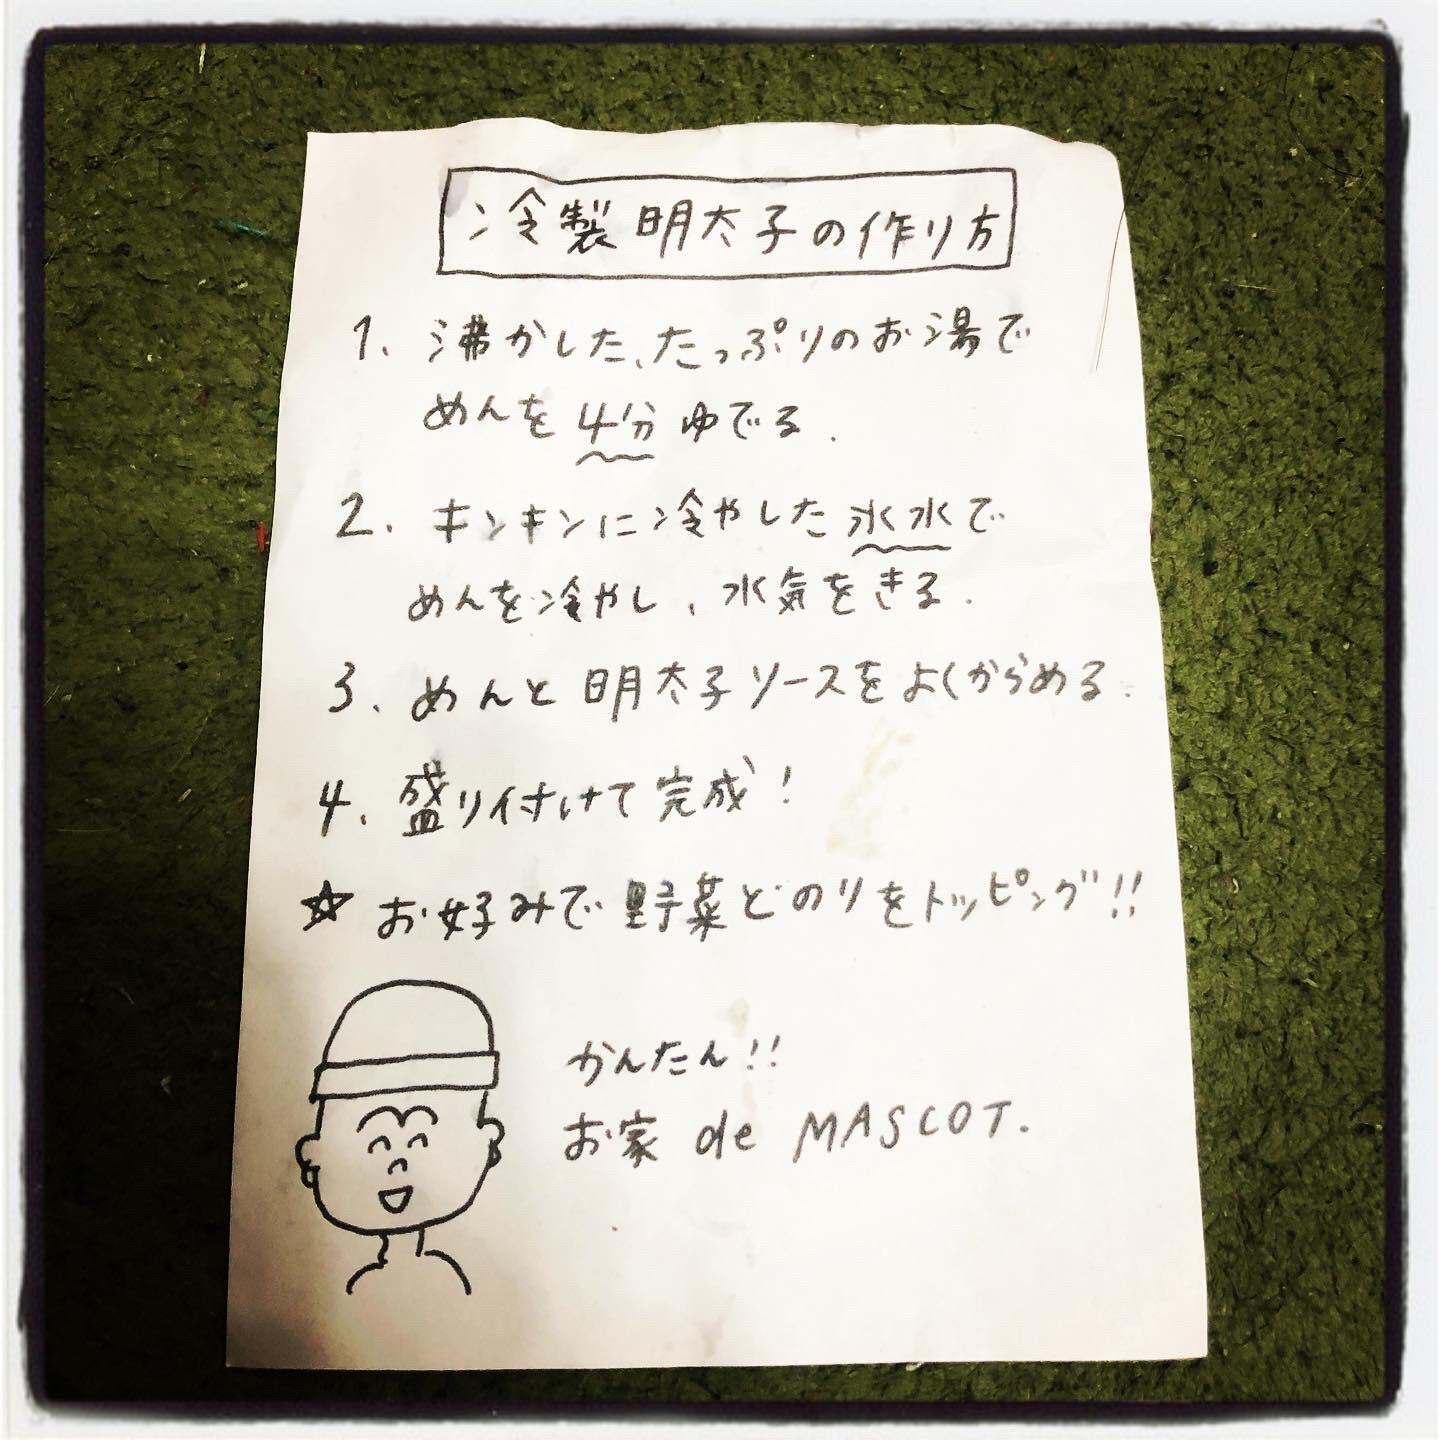 冷製明太子の作り方
1. 沸かした、たっぷりのお湯で
めんを4分ゆでる.
2. キンキンに冷やした氷水で
めんを冷やし、水気をきる.
3. めんと明太子ソースをよくからめる.
4. 盛り付けて完成!
☆ お好みで野菜どのりをトッピング!!
かんたん!!
お家 de MASCOT.